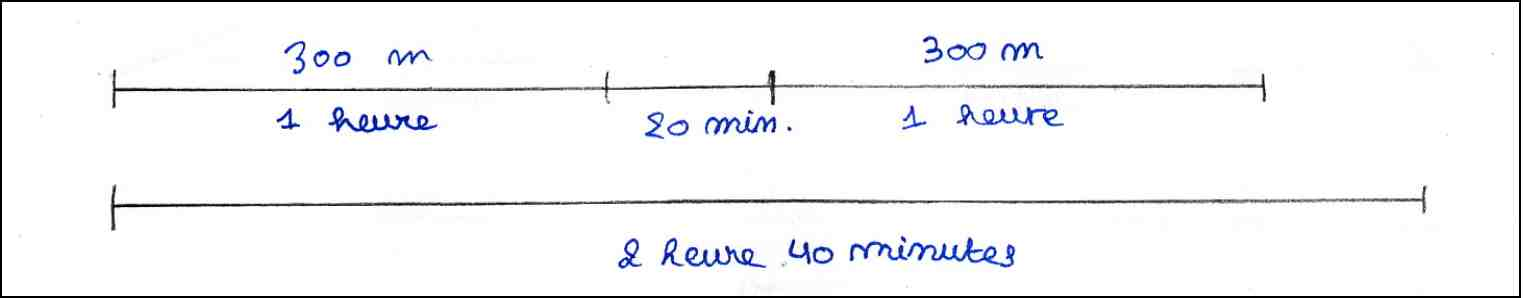 300 m 300 m
1 heure 20 min. 1 heure
2 heure 40 minutes